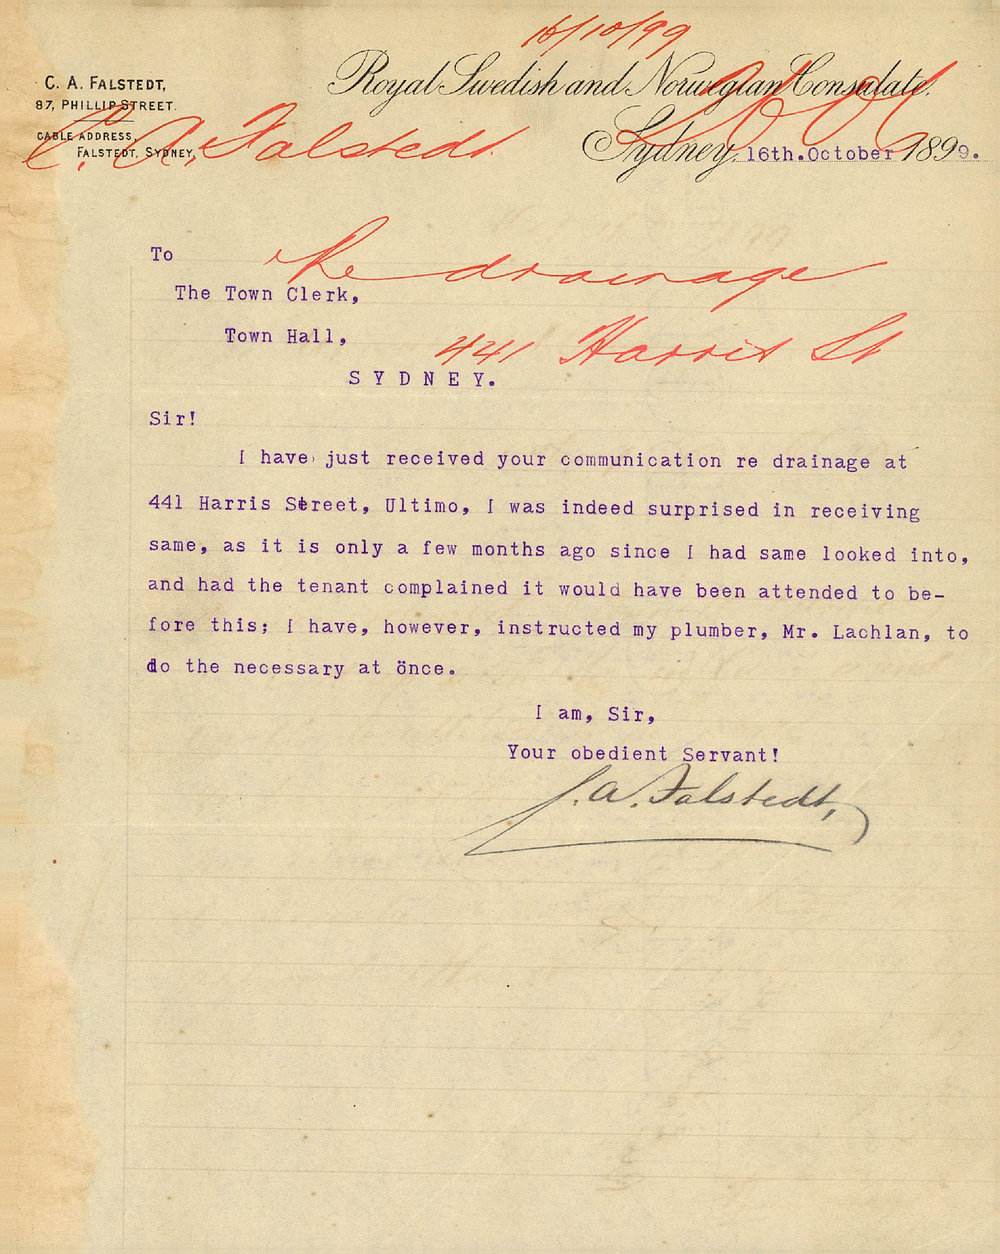 16/10/99
C. A. FALSTEDT,
87, PHILLIP STREET.
CABLE ADDRESS,
FALSTEDT, SYDNEY.
Royal Swedish and Norwegian Consulate.
Sydney, 16th.October 1899.
C. A. Falstedt.
To
Re drainage
The Town Clerk,
Town Hall,
441 Harris St
S Y D N E Y.
Sir!
I have just received your communication re drainage at
441 Harris Street, Ultimo, I was indeed surprised in receiving
same, as it is only a few months ago since I had same looked into,
and had the tenant complained it would have been attended to be-
fore this; I have, however, instructed my plumber, Mr. Lachlan, to
do the necessary at önce.
I am, Sir,
Your obedient Servant!
C. A. Falstedt,